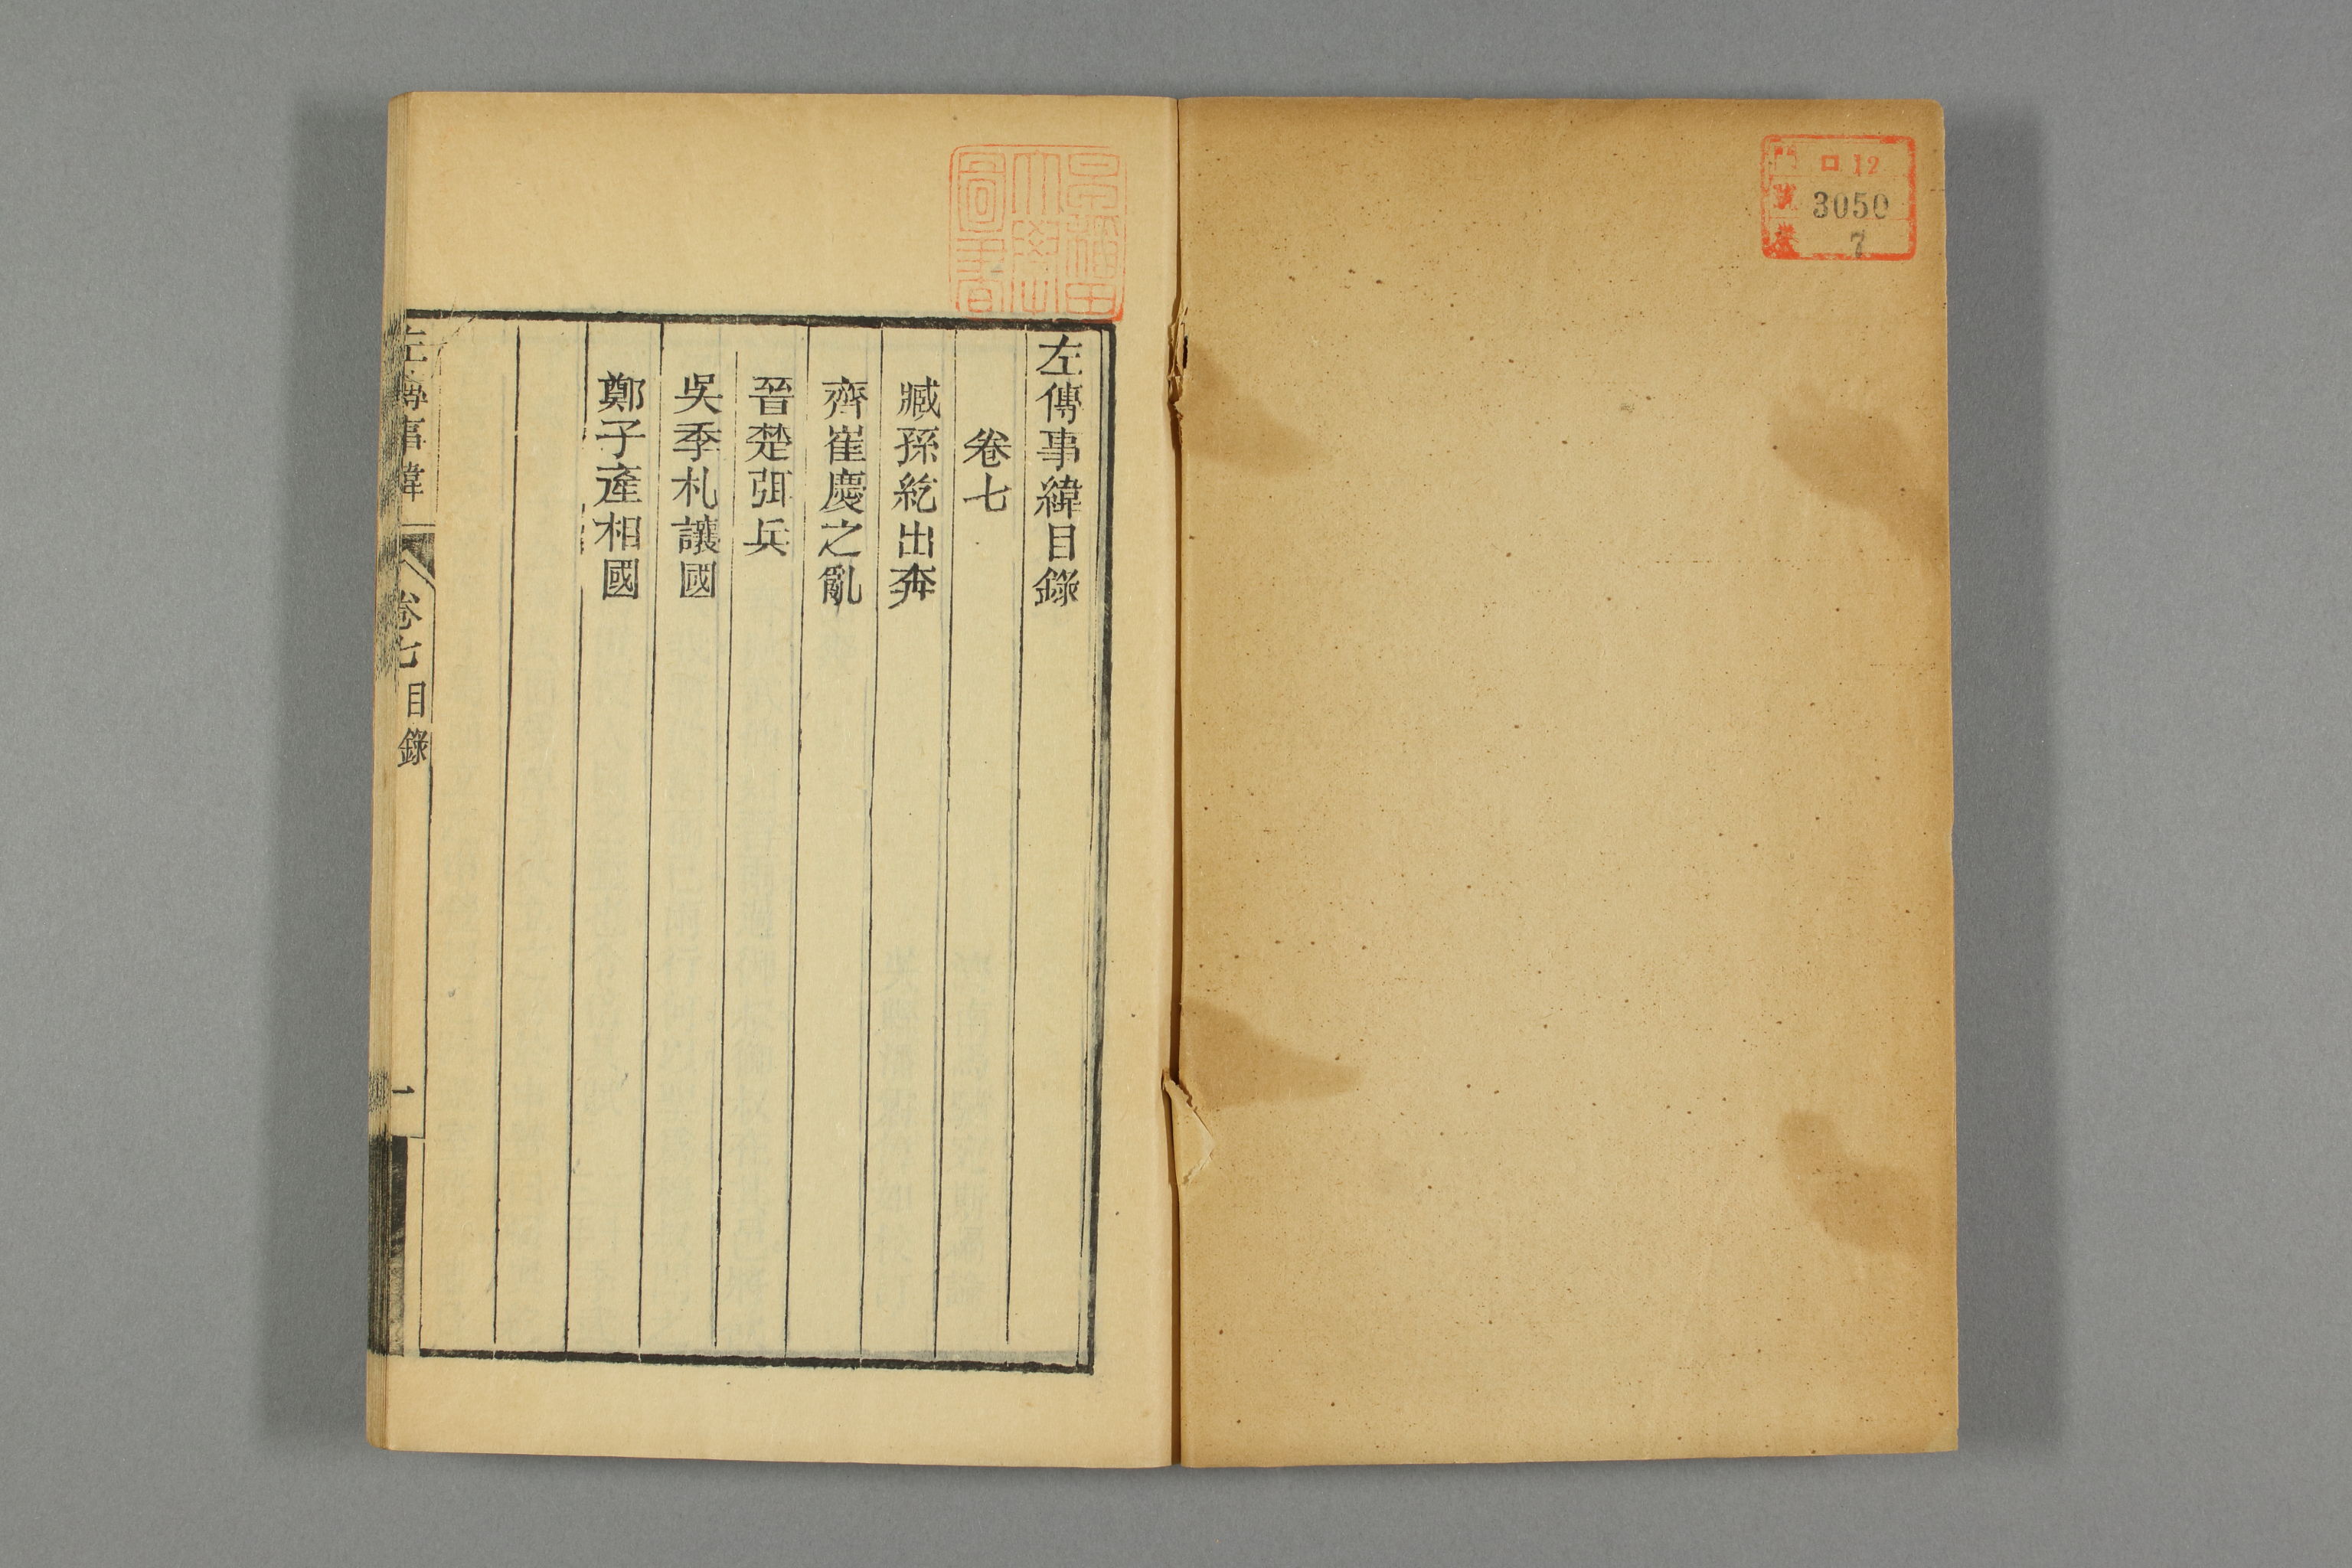 門 ロ12
號 3050
巻 7
早稲田大學圖書
左傳事緯目錄
卷七
臧孫紇出奔
齊崔慶之亂
晉楚弭兵
吳季札讓國
鄭子產相國
左傳事緯 卷七 目錄 一